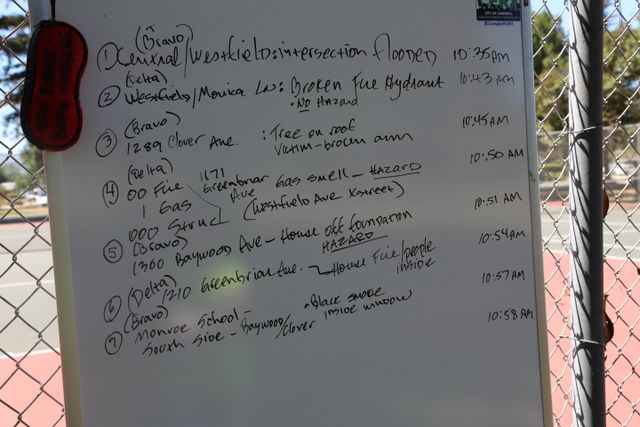 (Bravo)
① Central/Westfield: intersection flooded 10:35am
(Delta)
② Westfield/Monica Ln: Broken Fire Hydrant 10:43am
• No Hazard
(Bravo)
③ 1289 Clover Ave. : Tree on roof 10:45am
Victim-broken arm
(Delta)
④ 00 Fire 1171 Greenbriar Ave Gas smell - HAZARD 10:50am
1 Gas (Westfield Ave Xstreet)
000 Struc
⑤ (Bravo) 10:51am
1300 Baywood Ave - House off foundation
HAZARD 10:54am
⑥ (Delta)
1210 Greenbrian Ave. House Fire/people inside 10:57am
(Bravo)
⑦ Monroe School - • Black smoke inside window 10:58AM
South Side - Baywood/Clover